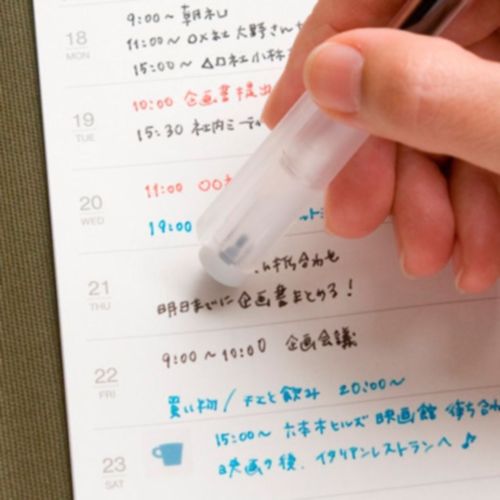 18
MON
9:00～ 朝礼
11:00～ ○×社 大野さん
15:00～ △□社 小林
19
TUE
10:00 企画書提出
15:30 社内ミーティ
20
WED
11:00 ○○
19:00
21
THU
打ち合わせ
明日までに企画書まとめる！
22
FRI
9:00～10:00 企画会議
買い物/ 飲み 20:00～
23
SAT
15:00～ 六本木ヒルズ 映画館 待ち合わ
映画の後、イタリアンレストランへ♪